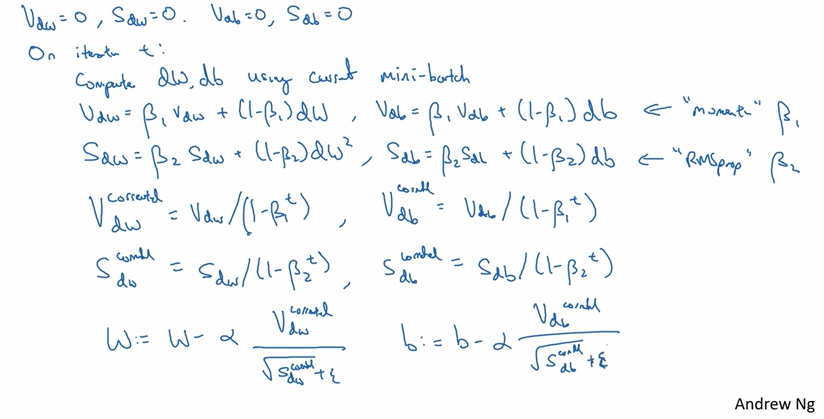 V_dw = 0, S_dw = 0. V_db = 0, S_db = 0
On iteration t:
Compute dW, db using current mini-batch
V_dw = β₁ V_dw + (1-β₁) dW , V_db = β₁ V_db + (1-β₁) db ← "momentum" β₁
S_dw = β₂ S_dw + (1-β₂) dW² , S_db = β₂ S_db + (1-β₂) db ← "RMSprop" β₂
V_dw^corrected = V_dw / (1-β₁^t) , V_db^corrected = V_db / (1-β₁^t)
S_dw^corrected = S_dw / (1-β₂^t) , S_db^corrected = S_db / (1-β₂^t)
W := W - α V_dw^corrected / √S_dw^corrected + ε b := b - α V_db^corrected / √S_db^corrected + ε
Andrew Ng